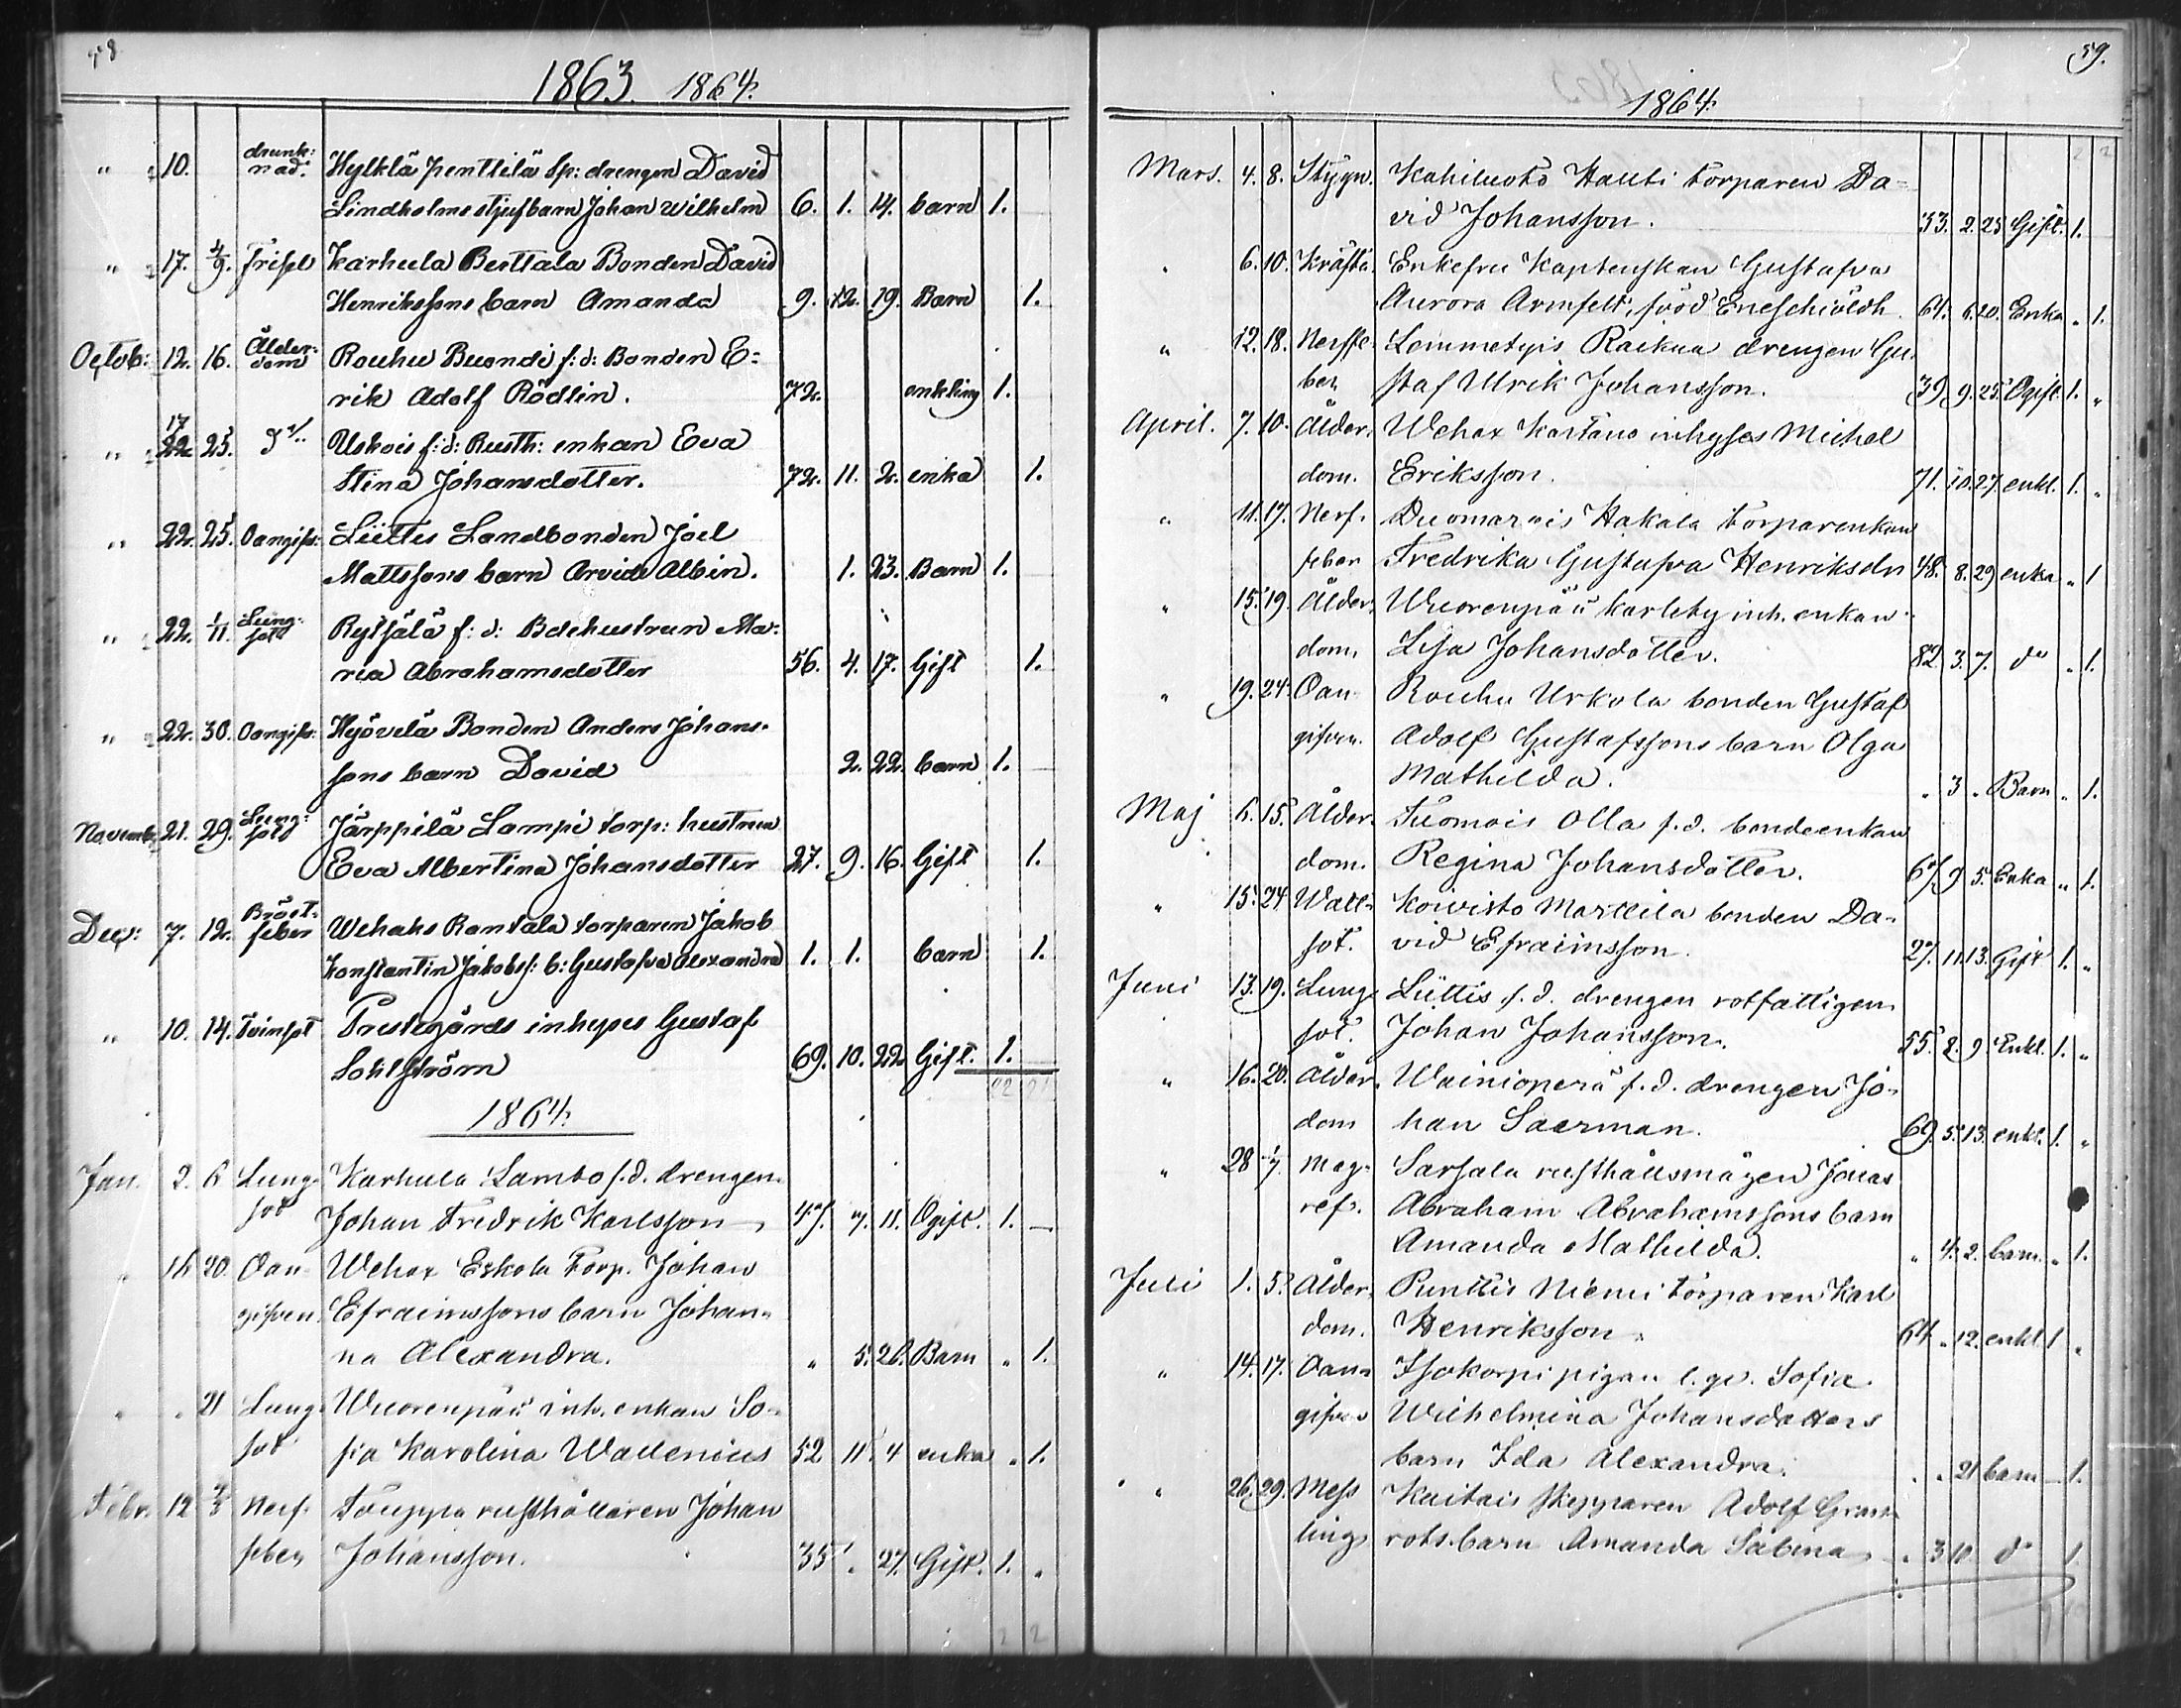 58
1863. 1864.
" 10. drunk: Hylklä Penttilä Sp: drengen David
nad. Lindholms stjufbarn Johan Wilhelm 6. 1. 14. barn 1.
" 17. 4/9. Frisel Karhula Berttala Bonden David
Henrikssons barn Amanda 9. 12. 19. Barn 1.
Octob: 12. 16. Ålder- Rouhu Buondi f: d: Bonden E-
dom rik Adolf Rödlin. 72. enkling 1.
17
" 22. 25. d:o Uskois f: d: Rusth: enkan Eva
Stina Johansdotter. 72. 11. 2. enka 1.
" 22. 25. Oangifv: Liettes Landbonden Joel
Mattssons barn Arvid Albin. 1. 23. Barn 1.
" 22. 1/11. Lung- Rytsälä f: d: Bdehustrun Ma-
sot ria Abrahamsdotter 56. 4. 17. Gift 1.
" 22. 30. Oangifv: Hyövelä Bonden Anders Johans-
sons barn David 2. 22. barn 1.
Novemb: 21. 29. Lung- Järppilä Lampi torp: hustrun
sot Eva Albertina Johansdotter 27. 9. 16. Gift 1.
Dec: 7. 12. Bröst- Wehaks Rantala torparen Jakob
feber Konstantin Jakobss: b: Gustafva Alexandra 1. 1. barn 1.
" 10. 14. Tvinsot Prestegårds inhyses Gustaf
Sohlström 69. 10. 22 Gift. 1.
22 21
1864.
Jan. 2. 6 Lung- Karhula Lambo f. d. drengen
sot Johan Fredrik Karlsson 47. 7. 11. Ogift. 1. —
" 16 20. Oan- Wehax Eskola Torp. Johan
gifven. Efraimssons barn Johan-
na Alexandra. " 5. 26. Barn " 1.
" " 21 Lung- Wuorenpää inh. enkan So-
sot fia Karolina Wallenius 52 11. 4 enka " 1.
Febr. 12 2/3 Nerf- Touppa rusthållaren Johan
feber Johansson. 35 " 27. Gift. 1. "
2 2
59.
1864.
2 2
Mars. 4. 8. Stygn. Kahiluoto Hauti torparen Da-
vid Johansson. 33. 2. 25 Gift. 1.
" 6. 10. Kräfta. Enkefru Kaptenskan Gustafva
Aurora Armfelt, född Eneschiöldh 64. 6. 20. Enka " 1.
" 12. 18. Nerffe- Lemmetyis Raikua drengen Gu-
ber, staf Ulrik Johansson. 39. 9. 25. Ogift. 1. "
April. 7. 10. Ålder- Wehax Kartano inhyses Michel
dom. Eriksson. 71. 10. 27. enkl. 1. "
" 11. 17. Nerf- Duomarnis Hakala torparenkan
feber Fredrika Gustafva Henriksdr 48. 8. 29 enka " 1
" 15. 19. Ålder- Wuorenpää Karleby inh. enkan
dom. Lisa Johansdotter. 82. 3. 7. d:o " 1.
" 19. 24. Oan- Rouhu Urkola bonden Gustaf
gifven. Adolf Gustafssons barn Olga
Mathilda. " 3 " Barn " 1.
Maj 6. 15. Ålder- Tuomois Olla f. d. bondeenkan
dom. Regina Johansdotter. 67. 9 5. Enka " 1.
" 15. 24 Ватt- Koivisto Marttila bonden Da-
sot. vid Efraimsson. 27. 11. 13. Gift 1. "
Juni 13. 19. Lung- Liittis f. d. drengen rotfattigen
sot. Johan Johansson. 55. 2. 9. Enkl. 1. "
" 16. 20. Ålder- Wainionperä f. d. drengen Jo-
dom han Saerman. 69. 5. 13. enkl. 1. "
" 28 1/7. Mag- Sarsala rusthållsmågen Jonas
ref. Abraham Abrahamssons barn
Amanda Mathilda. " 4. 2. barn. " 1.
Juli 1. 5. Ålder- Punttis Niemi torparen Karl
dom. Henriksson. 64 " 12. enkl 1 "
" 14. 17. Oan- Isokorpi pigan l. qv. Sofia
gifven Wilhelmina Johansdotters
barn Ida Alexandra. " " 21 barn — 1.
" 26. 29. Mess- Kaitais skepparen Adolf Gran-
ling rots barn Amanda Sabina " 3 10 d:o 1.